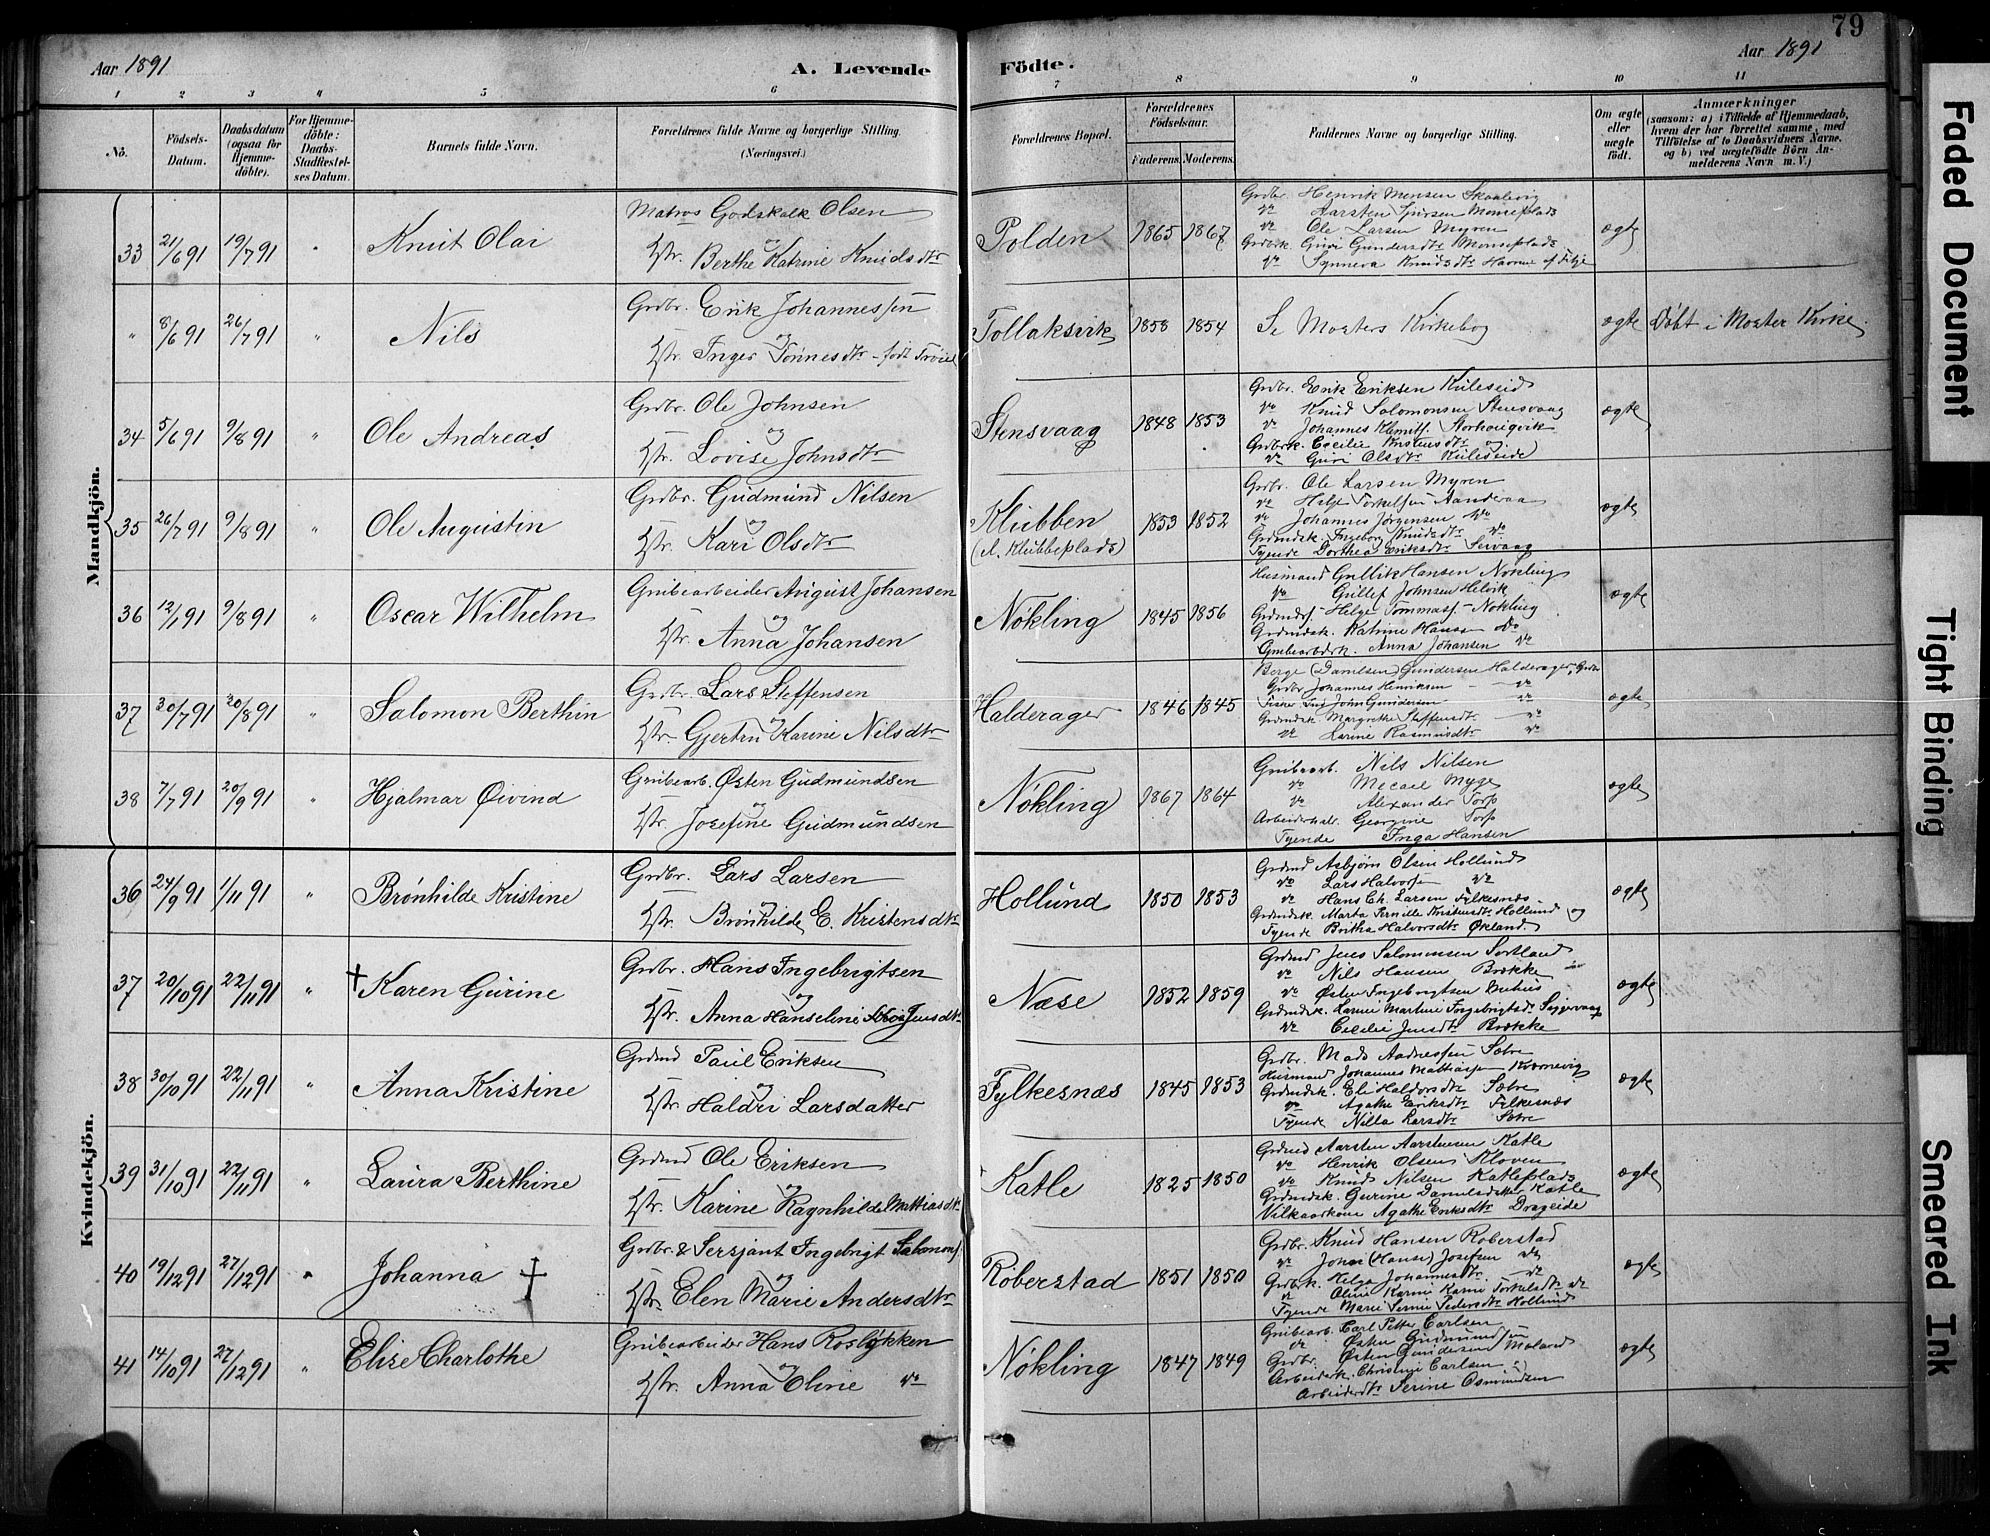 79
Aar 1891
A. Levende
Födte.
Aar 1891
1 2 3 4 5 6 7 8 9 10 11
No.
Födsels-Datum.
Daabsdatum (ogsaa for Hjemme-döbte).
For Hjemme-döbte: Daabs-Stadfæstel-ses Datum.
Barnets fulde Navn.
Forældrenes fulde Navne og borgerlige Stilling.
(Næringsvei.)
Forældrenes Bopæl.
Forældrenes Födselsaar.
Faderens. Moderens.
Faddernes Navne og borgerlige Stilling.
Om ægte eller uægte födt.
Anmærkninger
(saasom: a) i Tilfælde af Hjemmedaab,
hvem der har forrettet samme, med
Tilföielse af to Daabsvidners Navne,
og b) ved uægtefödte Börn An-
melderens Navn m. V.)
Mandkjön.
33 21/6 91 19/7 91 " Knut Olai
Matros Godskalk Olsen
og
Hstr. Berthe Katrine Knudsdtr
Polden 1865 1867
Grdbr. Henrik Monsen
do Aarsten Monseplads
do Ole Larsen Myren
Grdbrk. Guri Gundersdtr Monseplads
do Synneva Knudsdtr
ægte
" 8/6 91 26/7 91 " Nils
Grdbr. Erik Johannessen
og
Hstr. Inger Tönnesdtr - födt
Tollaksvik 1858 1854
Se Mosters Kirkebog
ægte Döbt i Moster Kirke.
34 5/6 91 9/8 91 " Ole Andreas
Grdbr. Ole Johnsen
og
Hstr. Lovise Johnsdtr
Stensvaag 1848 1853
Grdbr. Erik Eriksen Kuleseid
do Knud Salomonsen Stensvaag
do Johannes
Grdbrk. Cecilie og
do Guri Olsdtr Kuleseide
ægte
35 26/7 91 9/8 91 " Ole Augustin
Grdbr. Gudmund Nilsen
og
Hstr. Kari Olsdtr
Klubben
(A. Klubbeplads)
1853 1852
Grdbr. Ole Larsen Myren
do Helje Torkelsen Aanderaa
do Johannes Jørgensen do
Grdmdsk. Ingeborg Knudsdtr do
Tyende Dorthea Eriksdtr Servaag
ægte
36 12/1 91 9/8 91 " Oscar Wilhelm
Grubearbeider August Johansen
og
Hstr. Anna Johansen
Nökling 1845 1856
Husmand Gullik Hansen Nökling
do Gullef Johnsen
Grdmdsf. Helge Tommasf. Nökling
Grdmdsk. Katrine Hansen do
Grubearbdrk. Anna Johansen do
ægte
37 30/7 91 30/8 91 " Salomon Berthin
Grdbr. Lars Steffensen
og
Hstr. Gjertru Karine Nilsdtr
Halderager 1846 1845
Børge (Danilsen) Gundersen Halderager, Grdbr
Grdbr Johannes Henriksen do
Fisker John Gundersen do
Grdmdsk. Margrethe Steffensdtr do
do Larine Rasmusdtr do
ægte
38 7/7 91 20/9 91 " Hjalmar Øivind
Grubearb. Østen Gudmundsen
og
Hstr. Josefine Gudmundsen
Nökling 1867 1864
Grubearb. Nils Nilsen
do Mecael Myge
do Alexander Torp
Georgine Torp
Tyende Inga Hansen
ægte
Kvindekjön.
36 24/9 91 1/11 91 " Brönhilde Kristine
Grdbr. Lars Larsen
og
Hstr. Brönhilde E. Kristensdtr
Hollund 1850 1853
Grdmd Asbjørn Olsen Hollund
do Lars Halvorsen do
do Hans Ch. Larsen Filkesnæs
Grdmdsk. Marta Pernille Kristensdtr Hollund og
Tyende Britha Halvorsdtr Økland.
ægte
37 20/10 91 22/11 91 " † Karen Gurine
Grdbr. Hans Ingebrigtsen
og
Hstr. Anna Hanseline Jensdtr
Næse 1852 1859
Grdmd Jens Salomonsen Sortland
do Nils Hansen Brække
do Østen Ingebrigtsen
Grdmdsk. Larine Martine Ingebrigtsdtr
do Cecilie Jensdtr Brække
ægte
38 30/10 91 22/11 91 " Anna Kristine
Grdmd Paul Eriksen
og
Hstr. Haldri Larsdatter
Fylkesnæs 1845 1853
Grdbr. Mads Sætre
Husmand Johannes Mathiasen
Grdmdsk. Eli Haldorsdtr Sætre
do Agathe Eriksdtr Filkesnæs
Tyende Nilla Larsdtr Sætre
ægte
39 31/10 91 22/11 91 " Laura Berthine
Grdmd Ole Eriksen
og
Hstr. Karine Ragnhilde Mathiasdtr
Katle 1825 1850
Grdmd Aarsten Aarstensen Katle
do Henrik Olsen Kloven
do Knud Nilsen Katleplads
Grdmdsk. Gurine Danielsdatter Katle
Vilkaarkone Agathe Eriksdtr Drageide
ægte
40 19/12 91 27/12 91 " Johanna †
Grdbr. & Sersjant Ingebrigt Salomons.
og
Hstr. Elen Marie Andersdtr
Röberstad 1851 1850
Grdbr. Knud Hansen Roberstad
do Johan (Hanse) Josefsen do
Grdbrk. Helga Johannesdtr. do
do Oline Karine Karine Torkelsdtr do
Tyende Marie Pedersdtr Hollund
ægte
41 14/10 91 27/12 91 " Elise Charlothe
Grubearbeider Hans Roslökken
og
Hstr. Anna Oline do
Nökling 1847 1849
Grubearb. Carl Petter Carlsen
do Østen Gudmundsen
Grdbr. Østen Gundersen
Arbeiderk. Christine Carlsen
Arbeiderdtr Serine Osmundsen
ægte
Faded Document
Tight Binding
Smeared Ink